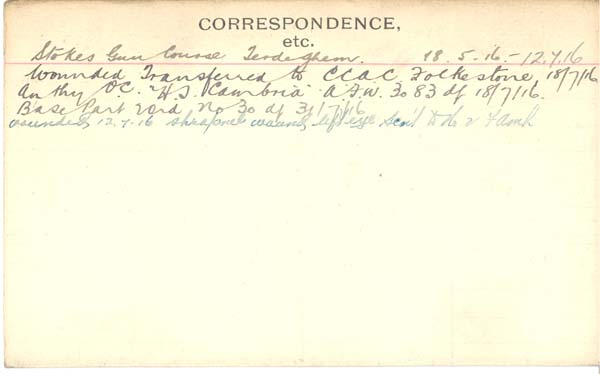 CORRESPONDENCE,
etc.
Stokes Gun Course Terdeghem. 18.5.16.-12.7.16
Wounded Transferred to CCAC Folkestone, 18/7/16
Authy O.C. "H.S. Cambria" A.F.W. 3083 df 18/7/16.
Base Part 2 Ord No 30 df 31/7/16
wounded 12.7.16 shrapnel wound left eye sent to No 2 F Amb